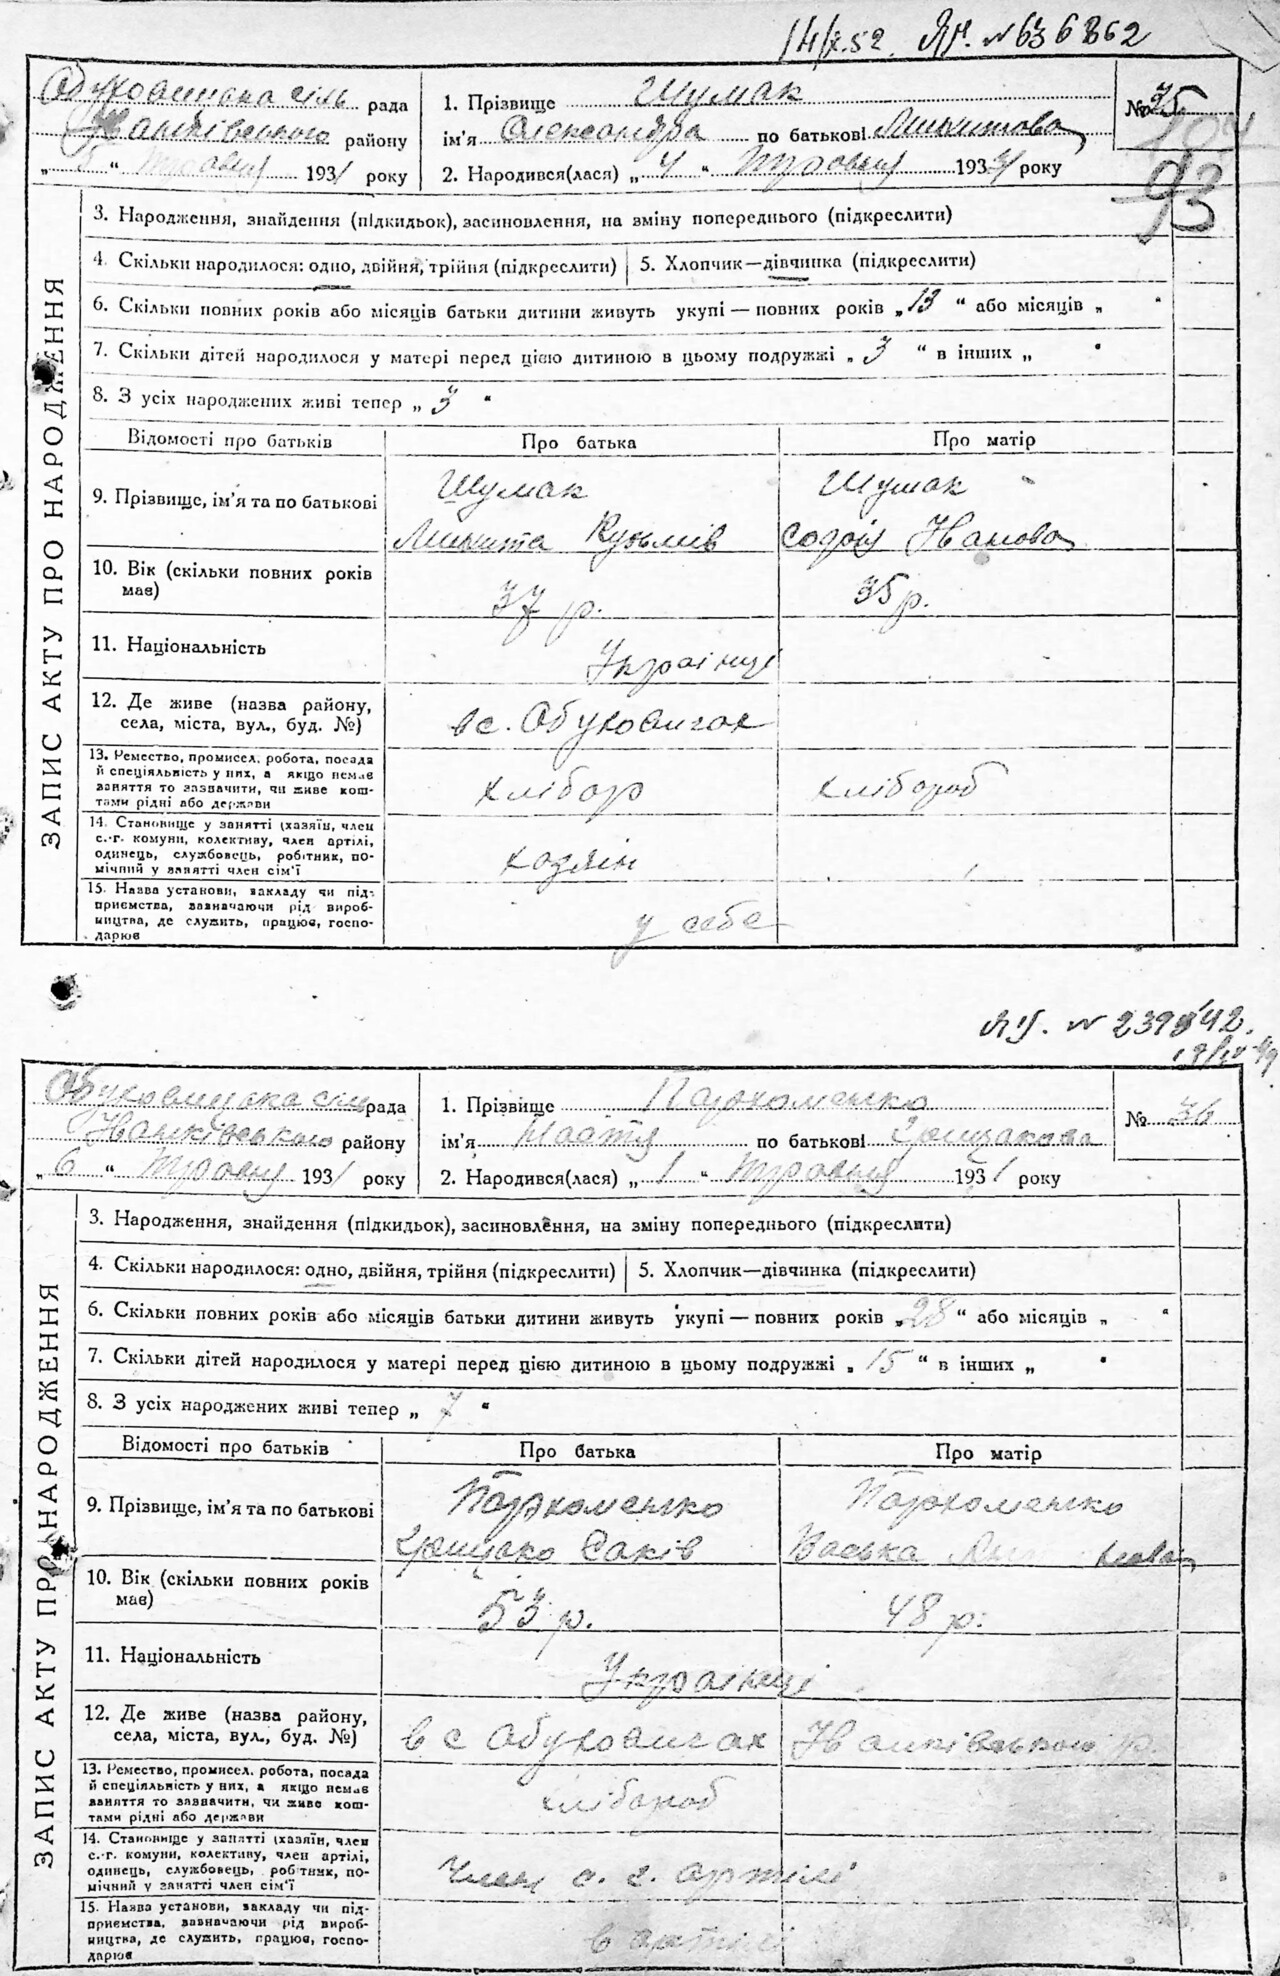 14/X.52. ЯЧ. № 636862
Обуховицька сіль рада
Іванківського району
„ 5 “ травня 1931 року
1. Прізвище Шумак
ім'я Олександра по батькові Микитова
2. Народився(лася) „ 4 “ травня 1931 року
№ 35
93
ЗАПИС АКТУ ПРО НАРОДЖЕННЯ
3. Народження, знайдення (підкидьок), засиновлення, на зміну попереднього (підкреслити)
4. Скільки народилося: одно, двійня, трійня (підкреслити) 5. Хлопчик—дівчинка (підкреслити)
6. Скільки повних років або місяців батьки дитини живуть укупі — повних років „ 13 “ або місяців „ “
7. Скільки дітей народилося у матері перед цією дитиною в цьому подружжі „ 3 “ в інших „ “
8. З усіх народжених живі тепер „ 3 “
Відомості про батьків Про батька Про матір
9. Прізвище, ім'я та по батькові Шумак Шумак
Микита Кузьмів Софія Іванова
10. Вік (скільки повних років
має) 37 р. 35 р.
11. Національність Українці
12. Де живе (назва району,
села, міста, вул., буд. №) в с. Обуховичах
13. Ремество, промисел, робота, посада
й спеціяльність у них, а якщо немає
заняття то зазначити, чи живе кош-
тами рідні або держави хлібор хлібороб
14. Становище у занятті (хазяїн, член
с.-г. комуни, колективу, член артілі,
одинець, службовець, робітник, по-
мічний у занятті член сім'ї хазяїн
15. Назва установи, закладу чи під-
приємства, зазначаючи рід вироб-
ництва, де служить, працює, госпо-
дарює у себе
ЯЧ. № 239842.
Обуховицька сіль рада
Іванківського району
„ 6 “ травня 1931 року
1. Прізвище Пархоменко
ім'я Настя по батькові Грицакова
2. Народився(лася) „ 1 “ травня 1931 року
№ 36
ЗАПИС АКТУ ПРО НАРОДЖЕННЯ
3. Народження, знайдення (підкидьок), засиновлення, на зміну попереднього (підкреслити)
4. Скільки народилося: одно, двійня, трійня (підкреслити) 5. Хлопчик—дівчинка (підкреслити)
6. Скільки повних років або місяців батьки дитини живуть укупі — повних років „ 28 “ або місяців „ “
7. Скільки дітей народилося у матері перед цією дитиною в цьому подружжі „ 15 “ в інших „ “
8. З усіх народжених живі тепер „ 7 “
Відомості про батьків Про батька Про матір
9. Прізвище, ім'я та по батькові Пархоменко Пархоменко
Грицько Саків Васька
10. Вік (скільки повних років
має) 53 р. 48 р.
11. Національність Українці
12. Де живе (назва району,
села, міста, вул., буд. №) в с Обуховичах Іванківського р.
13. Ремество, промисел, робота, посада
й спеціяльність у них, а якщо немає
заняття то зазначити, чи живе кош-
тами рідні або держави хлібороб
14. Становище у занятті (хазяїн, член
с.-г. комуни, колективу, член артілі,
одинець, службовець, робітник, по-
мічний у занятті член сім'ї член с. г. артілі
15. Назва установи, закладу чи під-
приємства, зазначаючи рід вироб-
ництва, де служить, працює, госпо-
дарює в артілі